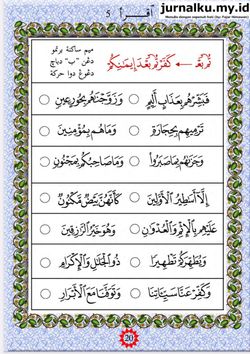 jurnalku.my.id
اقرأ 5
ميم ساكنة برتمو
دڠن "ب" دباچ
دڠوڠ دوا حركة
تُم بَعْـ ← كَفَرْتُم بَعْدَ إِيمَـٰنِكُمْ
فَبَشِّرْهُم بِعَذَابٍ أَلِيمٍ ○ وَزَوَّجْنَـٰهُم بِحُورٍ عِينٍ ○
تَرْمِيهِم بِحِجَارَةٍ ○ وَمَا هُم بِمُؤْمِنِينَ ○
وَجَزَىٰهُم بِمَا صَبَرُوا ○ وَمَا صَاحِبُكُم بِمَجْنُونٍ ○
إِلَّا أَسَـٰطِيرُ الْأَوَّلِينَ ○ كَأَنَّهُنَّ بَيْضٌ مَّكْنُونٌ ○
عَلَيْهِم بِالْإِثْمِ وَالْعُدْوَانِ ○ وَهُوَ خَيْرُ الرَّازِقِينَ ○
وَيُطَهِّرَكُمْ تَطْهِيرًا ○ ذُو الْجَلَالِ وَالْإِكْرَامِ ○
وَكَفِّرْ عَنَّا سَيِّئَاتِنَا ○ وَتَوَفَّنَا مَعَ الْأَبْرَارِ ○
20